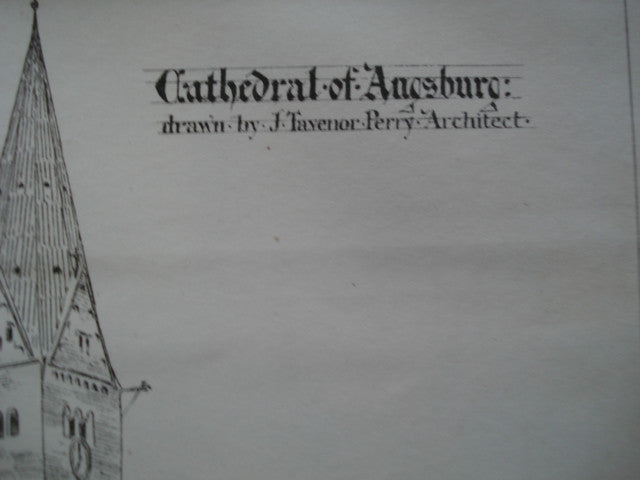 Cathedral·of·Augsburg:
drawn·by·J·Tavenor·Perry·Architect·